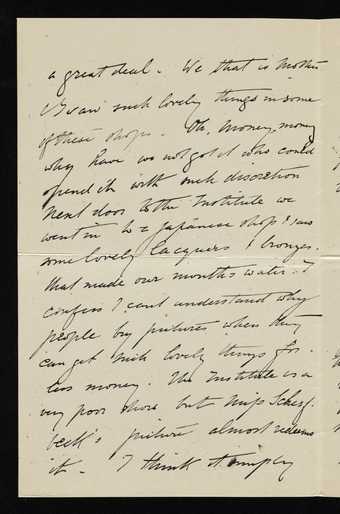 a great deal. We that is Mother
& I saw such lovely things in some
of these shops. Oh, money, money
why have we not got it who could
spend it with such discretion
Next door to the Institute we
went in to a Japanese shop & saw
some lovely lacquers & bronzes.
that made our mouths water. I
confess I cant understand why
people buy pictures when they
can get such lovely things for
less money. The Institute is a
very poor show but Miss Scherf-
beck's picture almost redeems
it. I think it simply